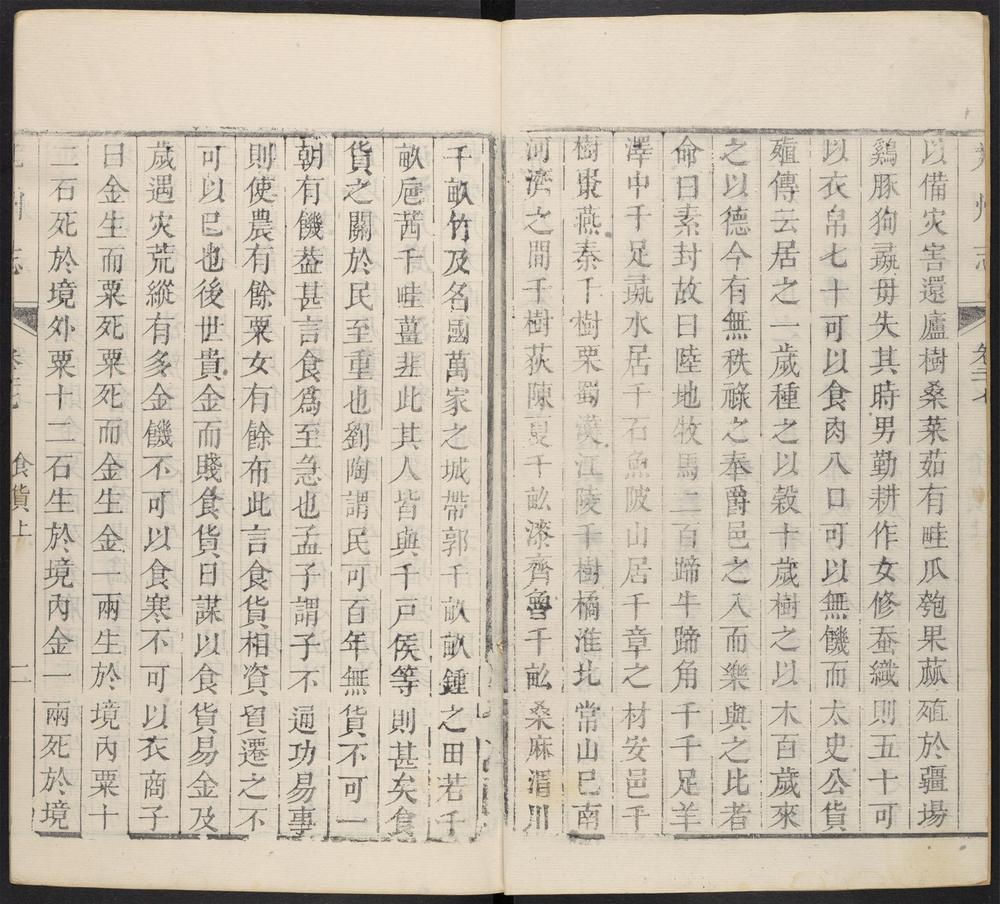 以備灾害還廬樹桑菜茹有畦瓜匏果蓏殖於疆場
鷄豚狗彘毋失其時男勤耕作女修蚕織則五十可
以衣帛七十可以食肉八口可以無饑而太史公貨
殖傳云居之一歲種之以穀十歲樹之以木百歲來
之以德今有無秩祿之奉爵邑之入而樂與之比者
命曰素封故曰陸地牧馬二百蹄牛蹄角千千足羊
澤中千足彘水居千石魚陂山居千章之材安邑千
樹棗燕秦千樹栗蜀漢江陵千樹橘淮北常山巳南
河濟之間千樹荻陳夏千畝漆齊魯千畝桑麻渭川
千畝竹及名國萬家之城帶郭千畝畝鍾之田若千
畝巵茜千畦薑韭此其人皆與千戸侯等則甚矣食
貨之關於民至重也劉陶謂民可百年無貨不可一
朝有饑葢甚言食爲至急也孟子謂子不通功易事
則使農有餘粟女有餘布此言食貨相資貿遷之不
可以巳也後世貴金而賤食貨日謀以食貨易金及
歲遇灾荒縱有多金饑不可以食寒不可以衣商子
曰金生而粟死粟死而金生金一兩生於境內粟十
二石死於境外粟十二石生於境內金一兩死於境
州志
卷 食貨上